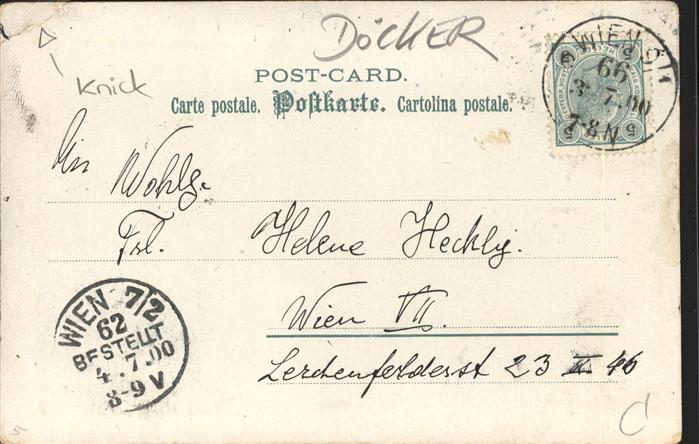 DÖCKER
Knick
POST-CARD.
Carte postale. Postkarte. Cartolina postale.
WIEN
66
3.7.00
7-8N
An Wohlg.
Frl. Helene Heckly.
Wien VII.
Lerchenfelderst 23 II 46
WIEN 7/2
62
BESTELLT
4.7.00
8-9V
5